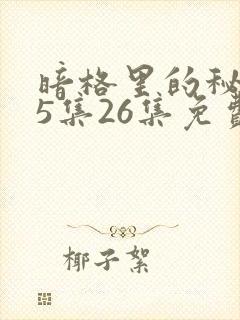 暗格里的秘
5集26集免费
椰子絮